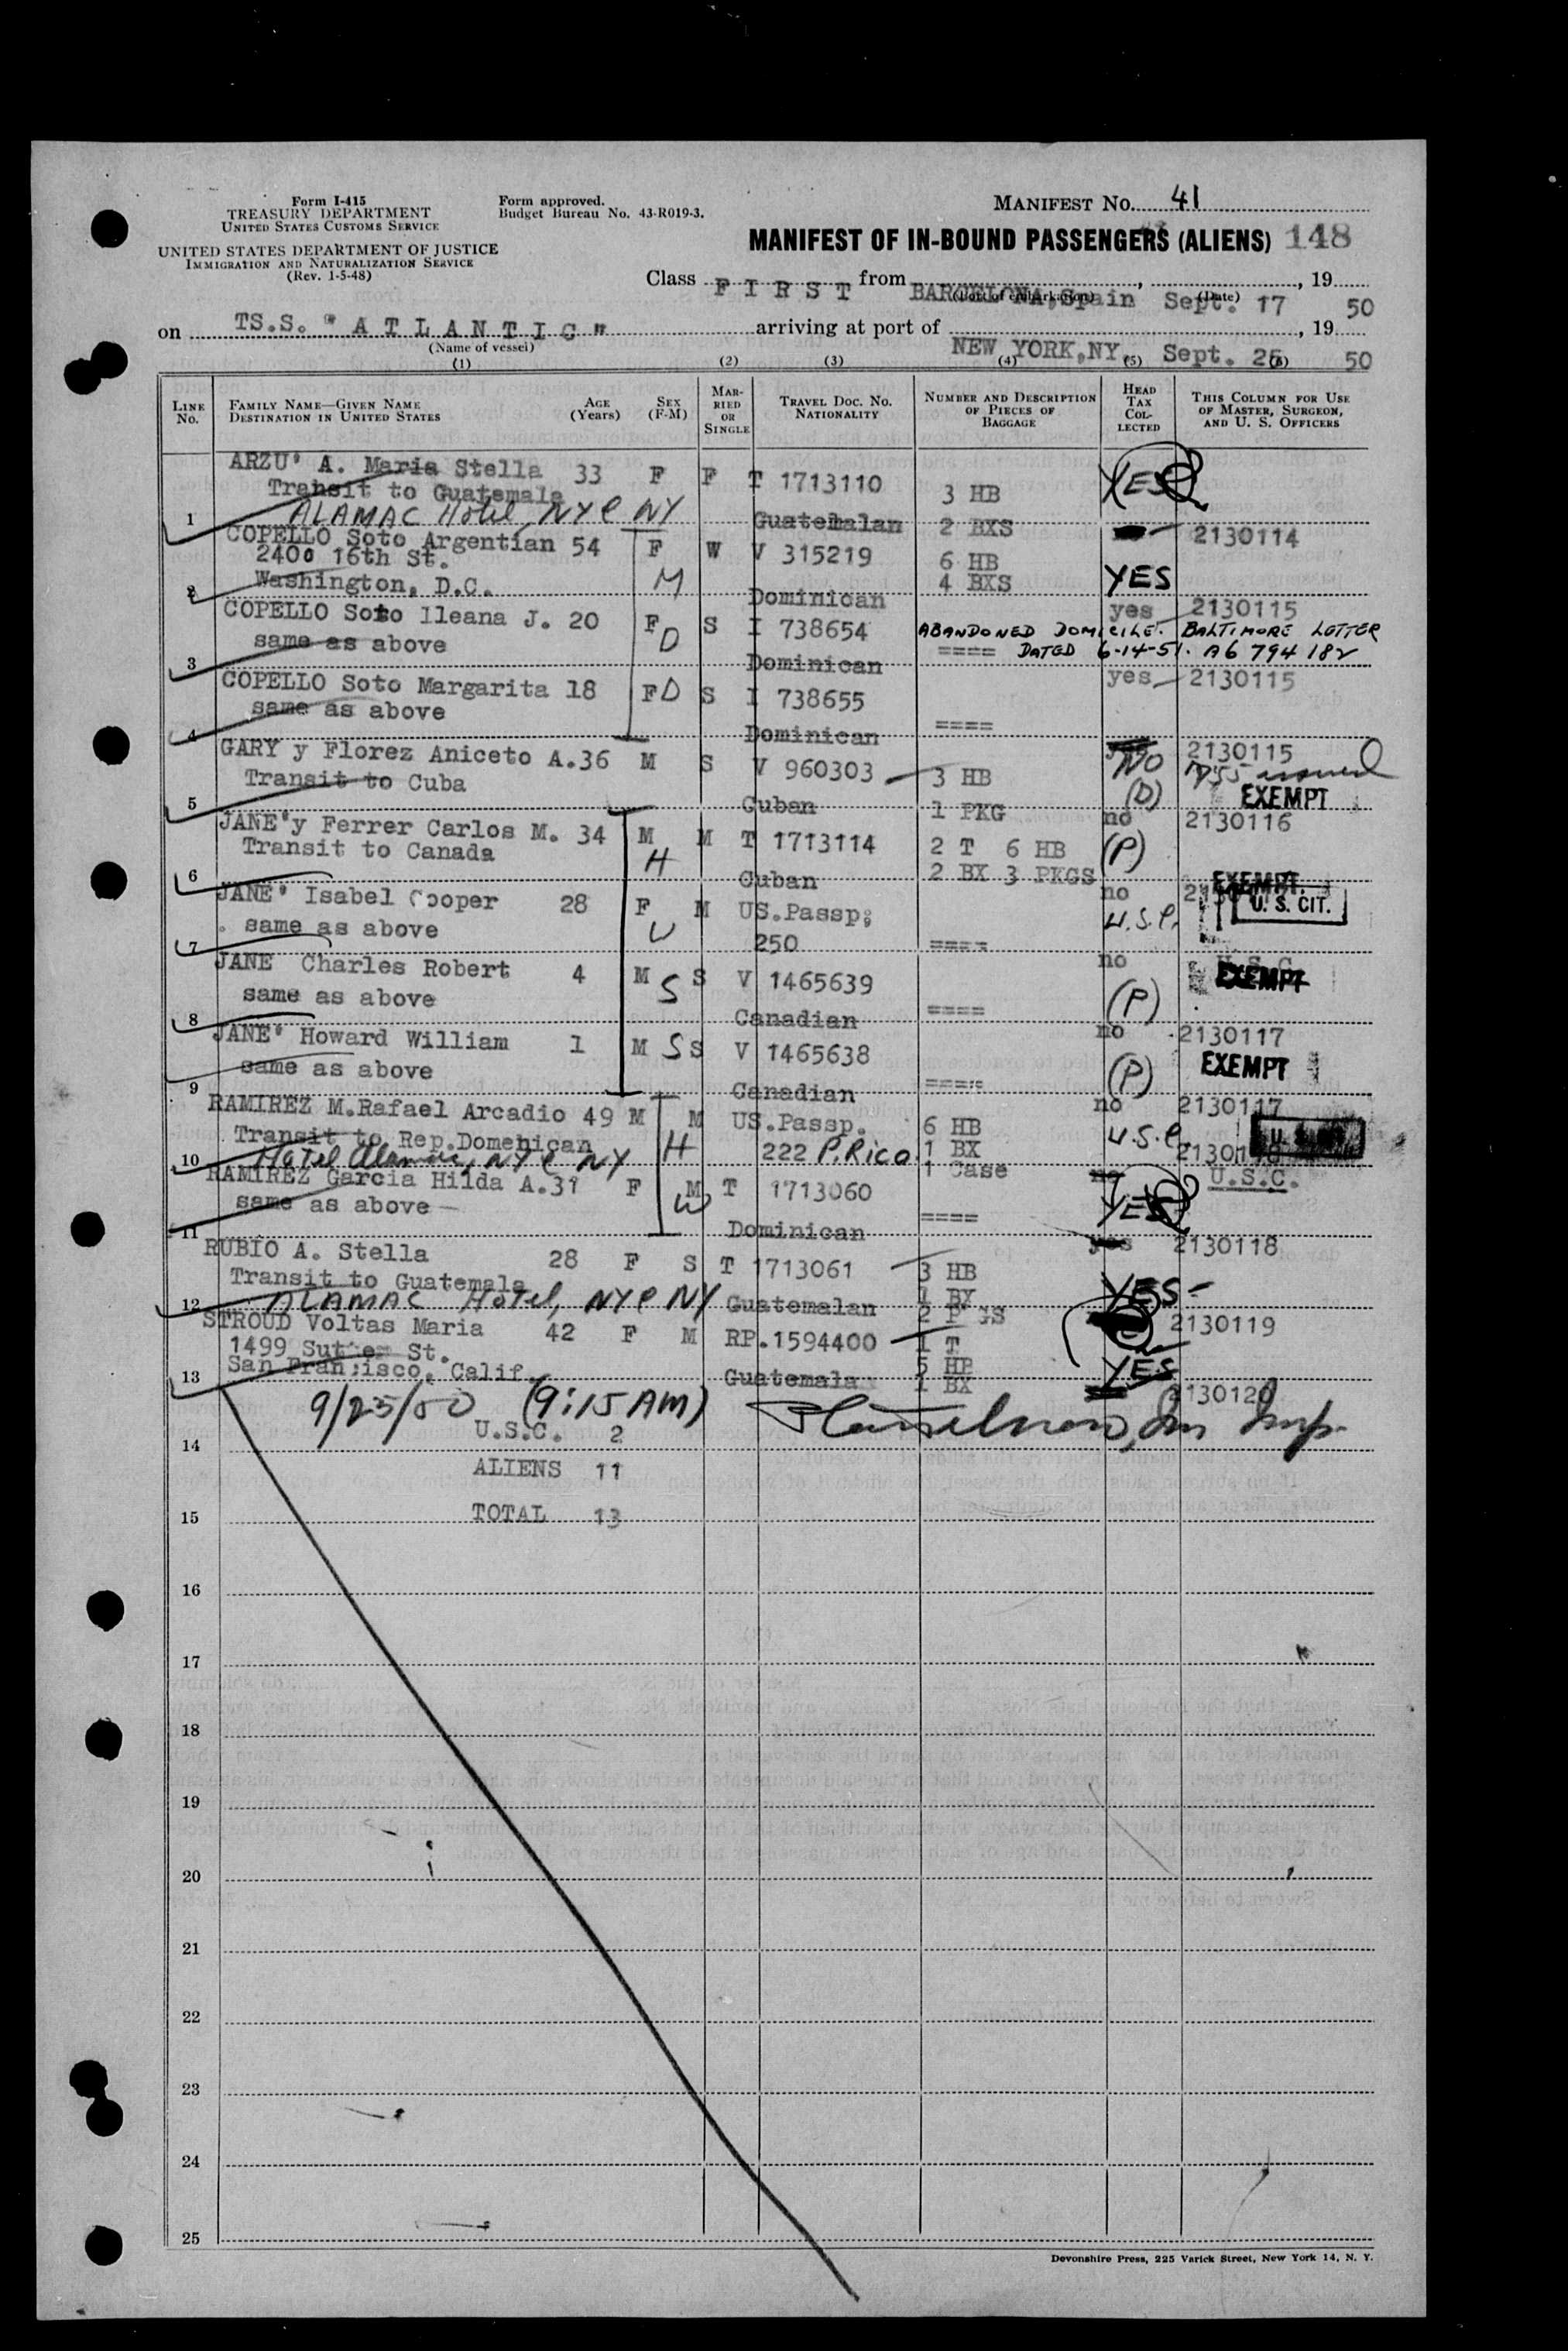 Form I-415
TREASURY DEPARTMENT
UNITED STATES CUSTOMS SERVICE
UNITED STATES DEPARTMENT OF JUSTICE
IMMIGRATION AND NATURALIZATION SERVICE
(Rev. 1-5-48)
Form approved.
Budget Bureau No. 43-R019-3.
MANIFEST No. 41
MANIFEST OF IN-BOUND PASSENGERS (ALIENS) 148
Class FIRST from BARCELONA, Spain Sept. 17, 19 50
(Port of embarkation) (Date)
on TS.S. "ATLANTIC" arriving at port of NEW YORK,NY, Sept. 25, 19 50
(Name of vessel)
(1) (2) (3) (4) (5) (6)
LINE No. FAMILY NAME—GIVEN NAME DESTINATION IN UNITED STATES AGE (Years) SEX (F-M) MARRIED OR SINGLE TRAVEL DOC. NO. NATIONALITY NUMBER AND DESCRIPTION OF PIECES OF BAGGAGE HEAD TAX COLLECTED THIS COLUMN FOR USE OF MASTER, SURGEON, AND U. S. OFFICERS
ARZU' A. Maria Stella 33 F F T 1713110 3 HB YES
Transit to Guatemala
1 ALAMAC Hotel, NYC NY Guatemalan 2 BXS 2130114
COPELLO Soto Argentian 54 F W V 315219 6 HB
2400 16th St. M 4 BXS YES
2 Washington, D.C. Dominican
COPELLO Soto Ileana J. 20 F D S I 738654 yes 2130115
same as above ABANDONED DOMICILE. BALTIMORE LETTER
3 Dominican ==== DATED 6-14-51. A6 794 182
COPELLO Soto Margarita 18 F D S I 738655 yes 2130115
same as above ====
4 Dominican
GARY y Florez Aniceto A. 36 M S V 960303 3 HB No 2130115
Transit to Cuba issued
5 Cuban 1 PKG (D) EXEMPT
JANE'y Ferrer Carlos M. 34 M M T 1713114 2 T 6 HB no 2130116
Transit to Canada H (P)
6 Cuban 2 BX 3 PKGS EXEMPT
JANE' Isabel Cooper 28 F M US.Passp; no U. S. CIT.
same as above W U.S.C.
7 250 ====
JANE Charles Robert 4 M S S V 1465639 no U.S.C.
same as above (P) EXEMPT
8 Canadian ====
JANE' Howard William 1 M S S V 1465638 no 2130117
same as above (P) EXEMPT
9 Canadian ====
RAMIREZ M.Rafael Arcadio 49 M M US.Passp. 6 HB no 2130117
Transit to Rep.Domenican H U.S.C.
10 Hotel Alamac, NYC NY 222 P.Rico 1 BX
1 Case
RAMIREZ Garcia Hilda A. 31 F M T 1713060 no U.S.C.
same as above W YES
11 Dominican ====
RUBIO A. Stella 28 F S T 1713061 3 HB yes 2130118
Transit to Guatemala 1 BX YES
12 ALAMAC Hotel, NYC NY Guatemalan 2 PKGS
STROUD Voltas Maria 42 F M RP.1594400 1 T 2130119
1499 Sutter St. 5 HB
13 San Francisco, Calif. Guatemalan 1 BX YES
2130120
9/25/50 (9:15 AM)
14 U.S.C. 2
ALIENS 11
15 TOTAL 13
16
17
18
19
20
21
22
23
24
25
Devonshire Press, 225 Varick Street, New York 14, N. Y.